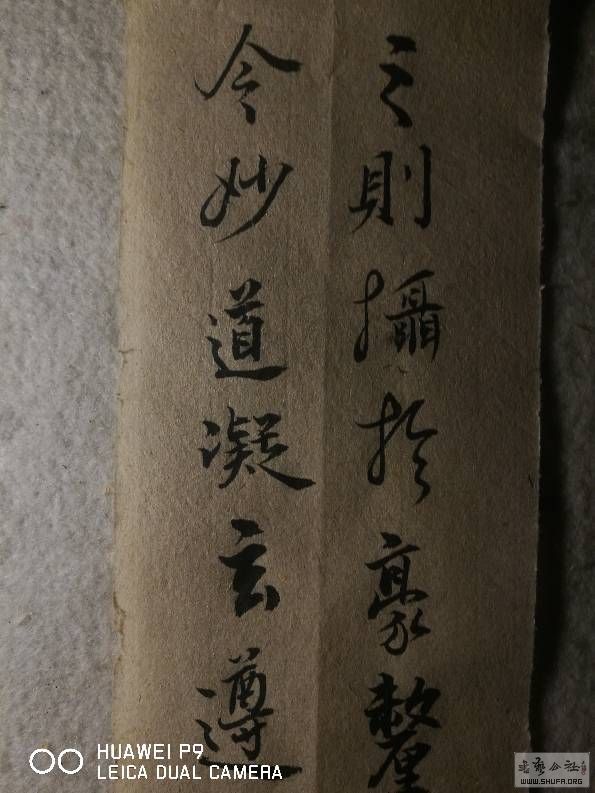 之則攝於豪釐
今妙道凝玄遵
HUAWEI P9
LEICA DUAL CAMERA
書藝公社
WWW.SHUFA.ORG